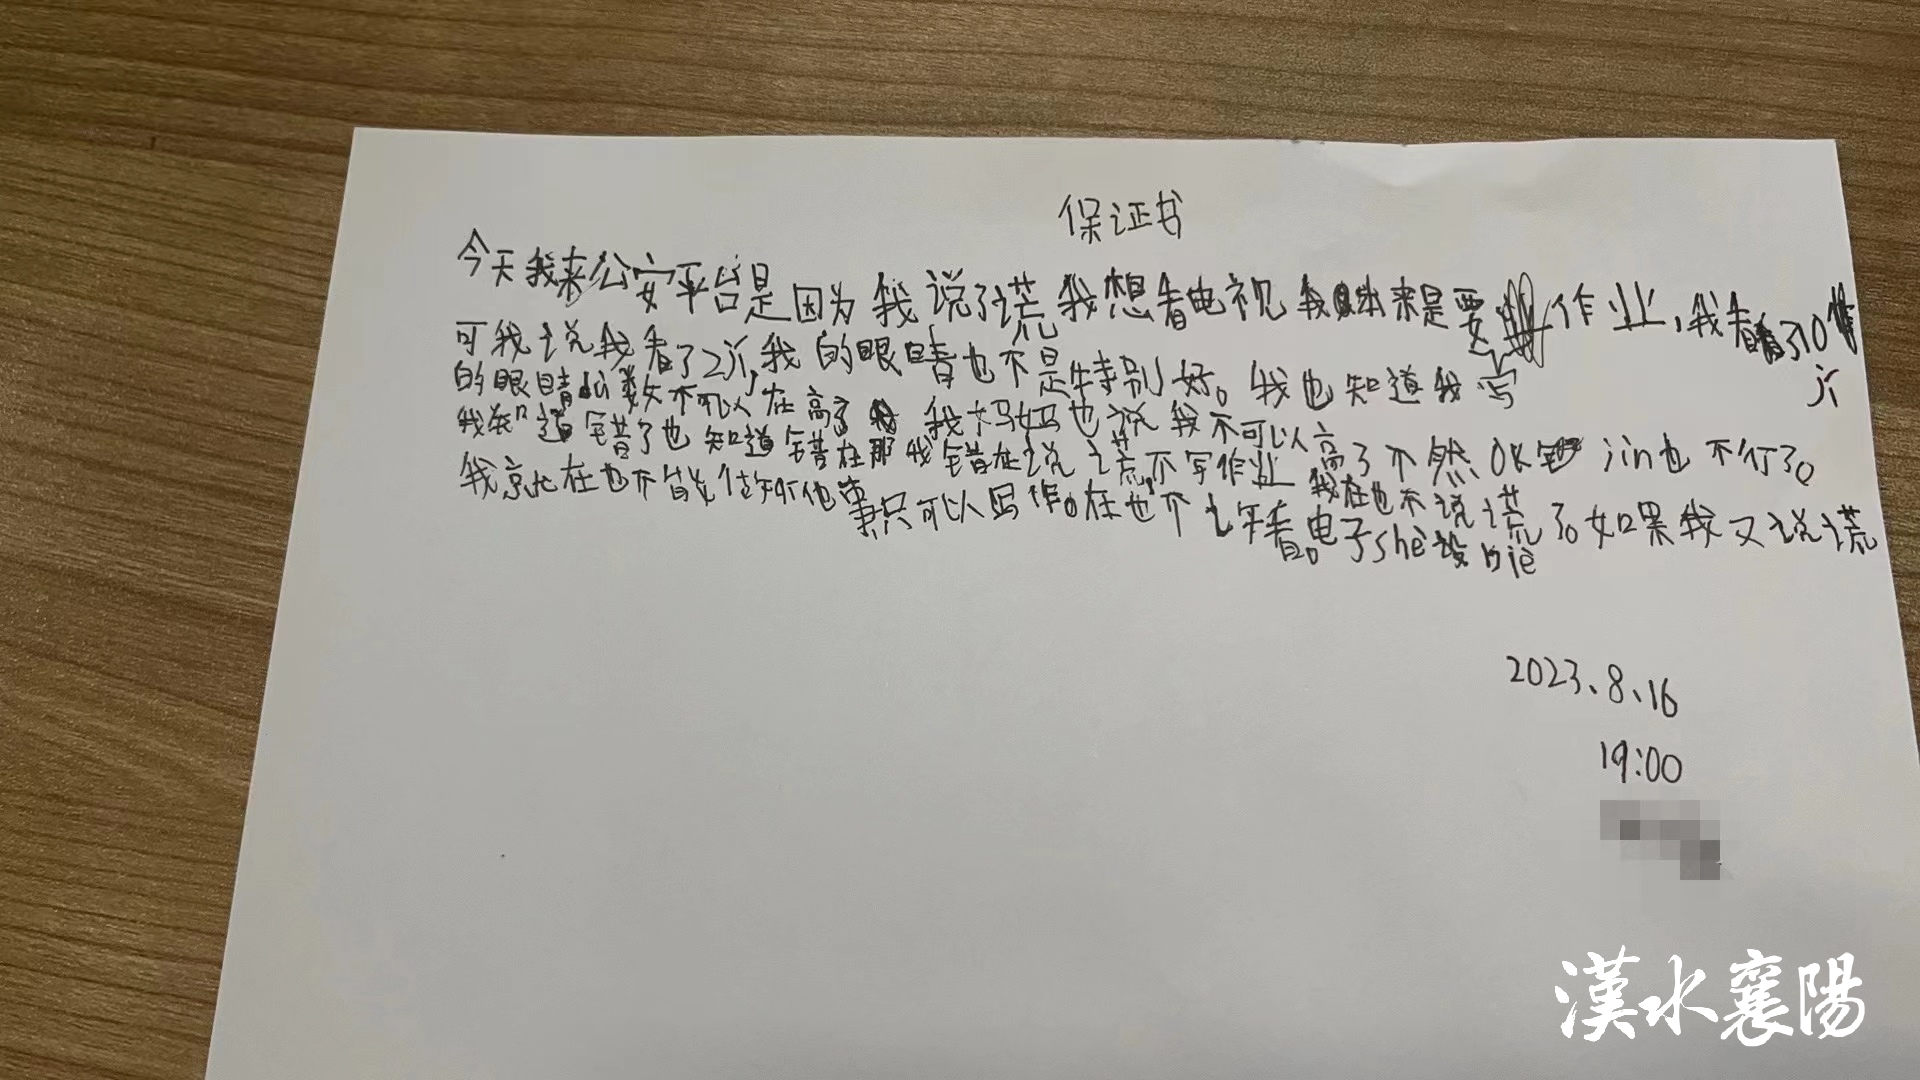 保证书
今天我来公安平台是因为我说了谎我想看电视我本来是要写作业,我看了10
可我说我看了2 我的眼睛也不是特别好。我也知道我
的眼睛 数不可以在高了 我妈妈也说我不可以高了不然OK jin也不行了。
我知道错了也知道错在那我错在说谎,不写作业 我在也不说谎了。如果我又说谎
我就在也不能做 他事只可以写作。在也不 看。电子she设bie
2023、8、16
19:00
漢水襄陽